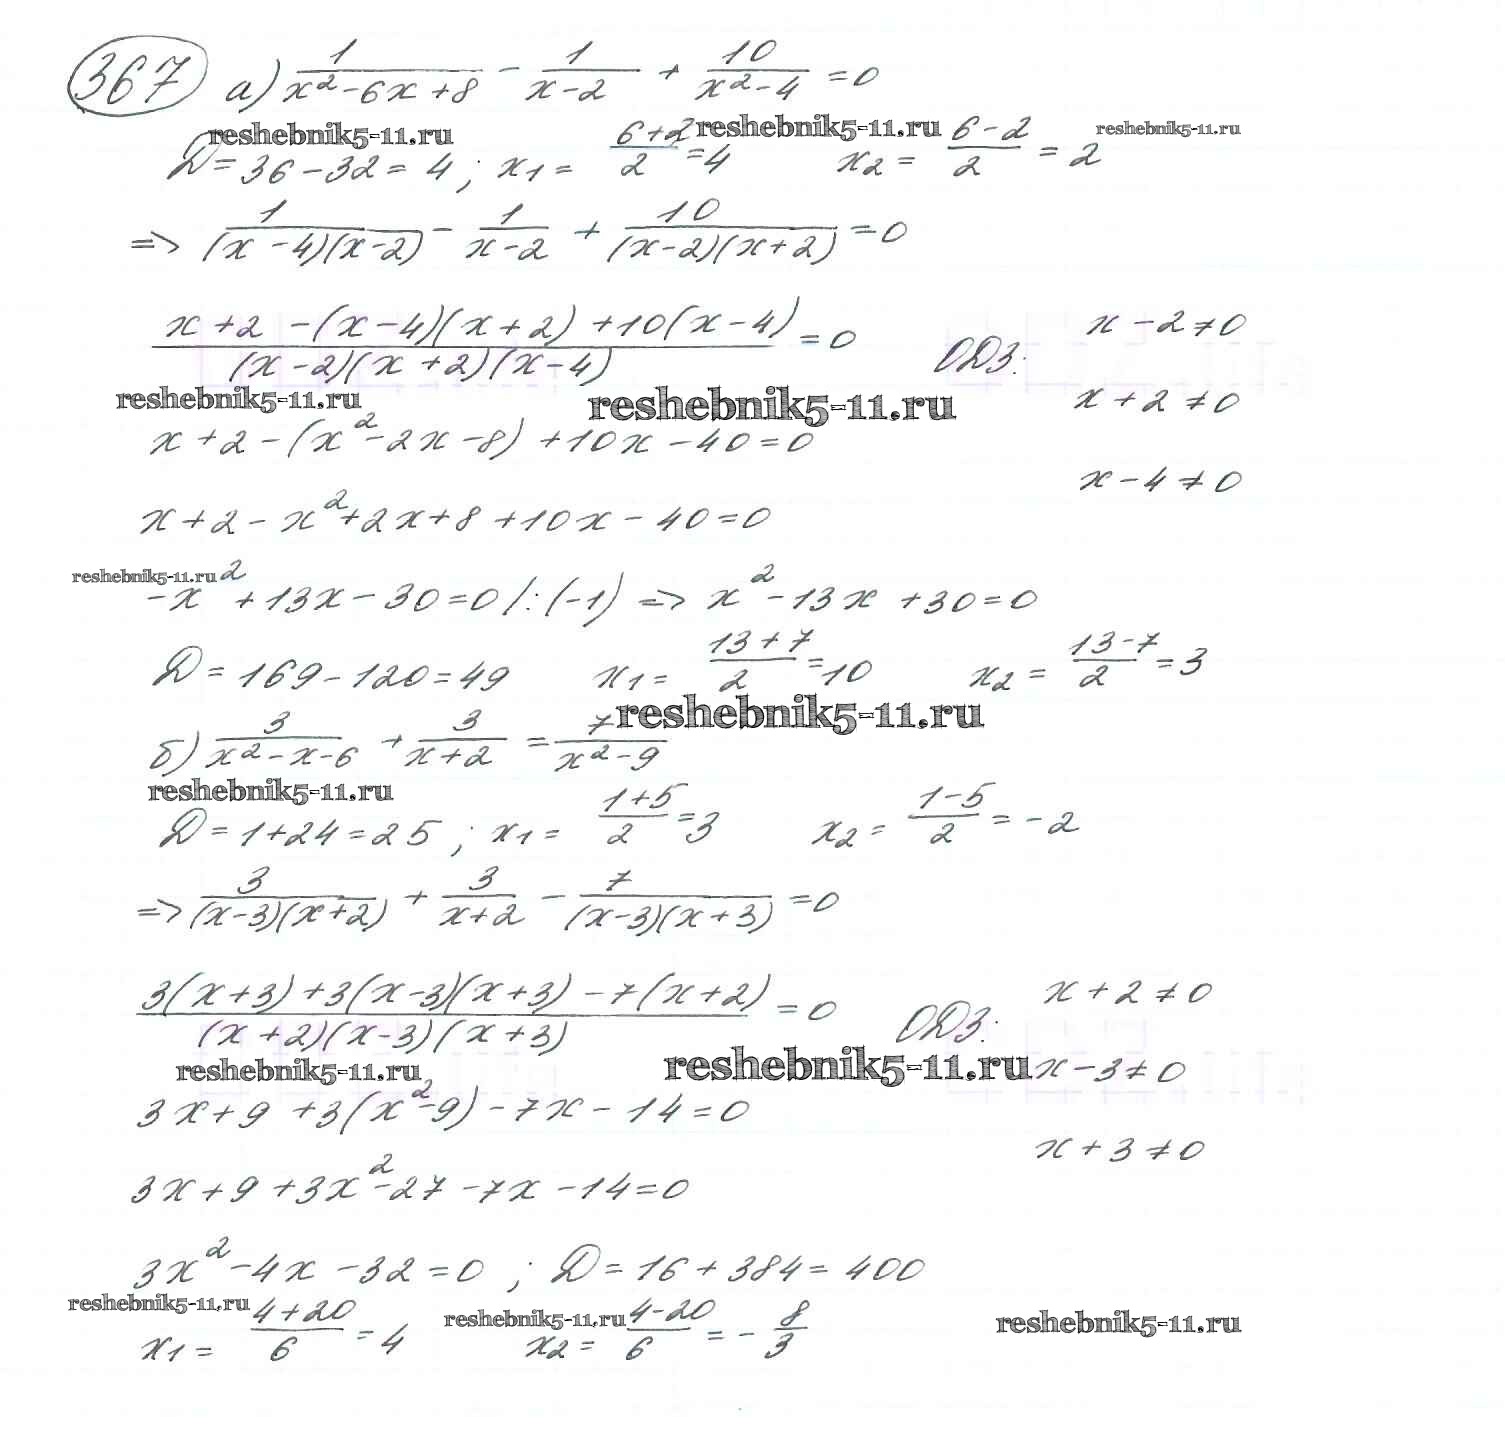 367 а) 1/(x²-6x+8) - 1/(x-2) + 10/(x²-4) = 0
reshebnik5-11.ru reshebnik5-11.ru reshebnik5-11.ru
D = 36-32 = 4; x1 = (6+2)/2 = 4 x2 = (6-2)/2 = 2
=> 1/((x-4)(x-2)) - 1/(x-2) + 10/((x-2)(x+2)) = 0
(x+2 -(x-4)(x+2) +10(x-4))/((x-2)(x+2)(x-4)) = 0 ОДЗ: x-2≠0
reshebnik5-11.ru reshebnik5-11.ru x+2≠0
x+2-(x²-2x-8)+10x-40=0
x-4≠0
x+2-x²+2x+8+10x-40=0
reshebnik5-11.ru
-x²+13x-30=0 /:(-1) => x²-13x+30=0
D = 169-120 = 49 x1 = (13+7)/2 = 10 x2 = (13-7)/2 = 3
reshebnik5-11.ru
б) 3/(x²-x-6) + 3/(x+2) = 7/(x²-9)
reshebnik5-11.ru
D = 1+24 = 25; x1 = (1+5)/2 = 3 x2 = (1-5)/2 = -2
=> 3/((x-3)(x+2)) + 3/(x+2) - 7/((x-3)(x+3)) = 0
(3(x+3)+3(x-3)(x+3)-7(x+2))/((x+2)(x-3)(x+3)) = 0 ОДЗ: x+2≠0
reshebnik5-11.ru reshebnik5-11.ru x-3≠0
3x+9+3(x²-9)-7x-14=0
x+3≠0
3x+9+3x²-27-7x-14=0
3x²-4x-32=0; D = 16+384 = 400
reshebnik5-11.ru reshebnik5-11.ru reshebnik5-11.ru
x1 = (4+20)/6 = 4 x2 = (4-20)/6 = -8/3